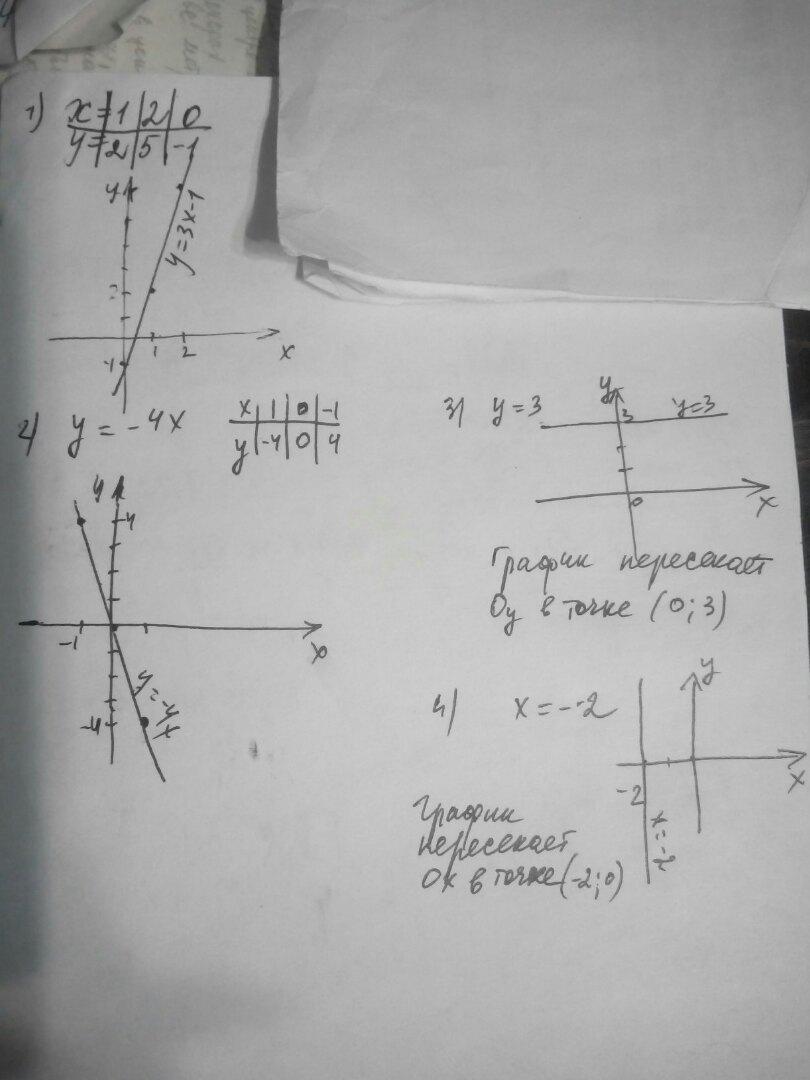 1) x= 1 | 2 | 0
y= 2 | 5 | -1
y
y=3x-1
-1
1 2
x
2) y = -4x
x | 1 | 0 | -1
y | -4 | 0 | 4
y
4
-1
x
-4
y=-4x
3) y=3
y
3
y=3
0
x
График пересекает
Oy в точке (0;3)
4) x = -2
y
-2
x
x=-2
График
пересекает
Ox в точке (-2;0)